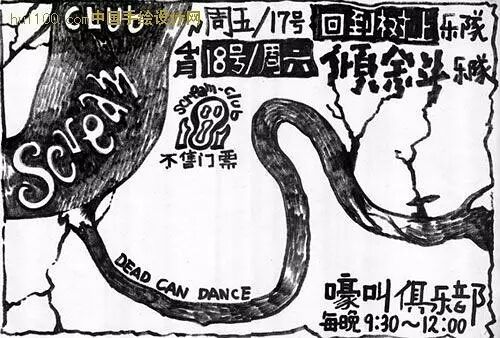 hui100.com 中国手绘设计网
CLUB
Scream
周五/17号 回到树上乐隊
18号/周六 倾斜乐隊
scream-club
不售门票
DEAD CAN DANCE
嚎叫俱乐部
每晚 9:30~12:00